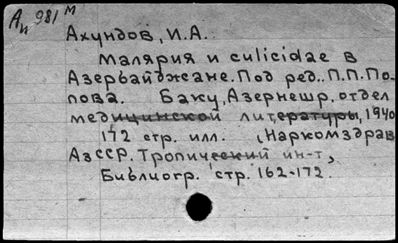 Ац 981 м
Ахундов, И.А.
Малярия и culicidae в
Азербайджане. Под ред. П.П. По-
пова. Баку, Азернешр. отдел
медицинской литературы, 1940
172 стр. илл. (Наркомздрав
АзССР. Тропический ин-т,
Библиогр. стр. 162-172.